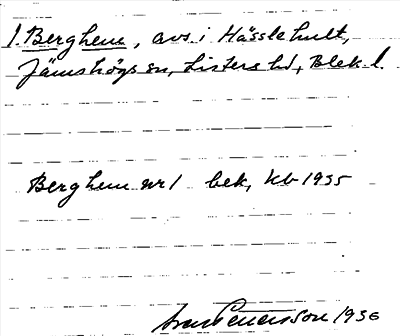 1. Berghem, avs. i Hässlehult,
Jämshögs sn, Listers hd, Blek. l.
Berghem nr 1 bek, kb 1935
Petersson 1936